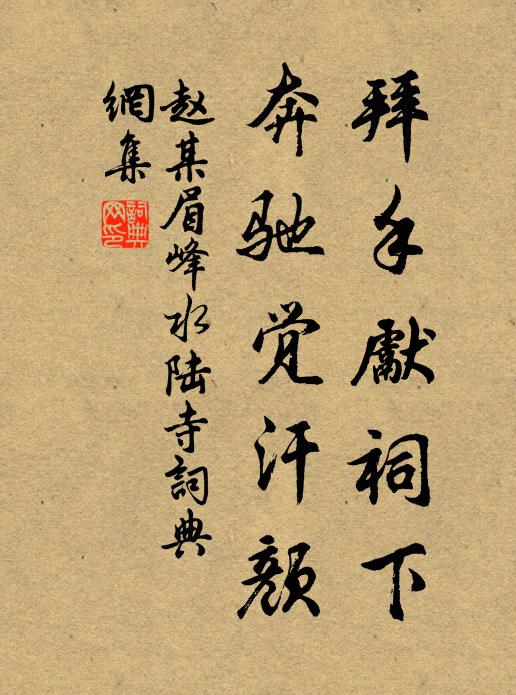 拜手獻祠下
奔驰觉汗颜
赵某眉峰水陆寺詞典
網集
詞典
网印